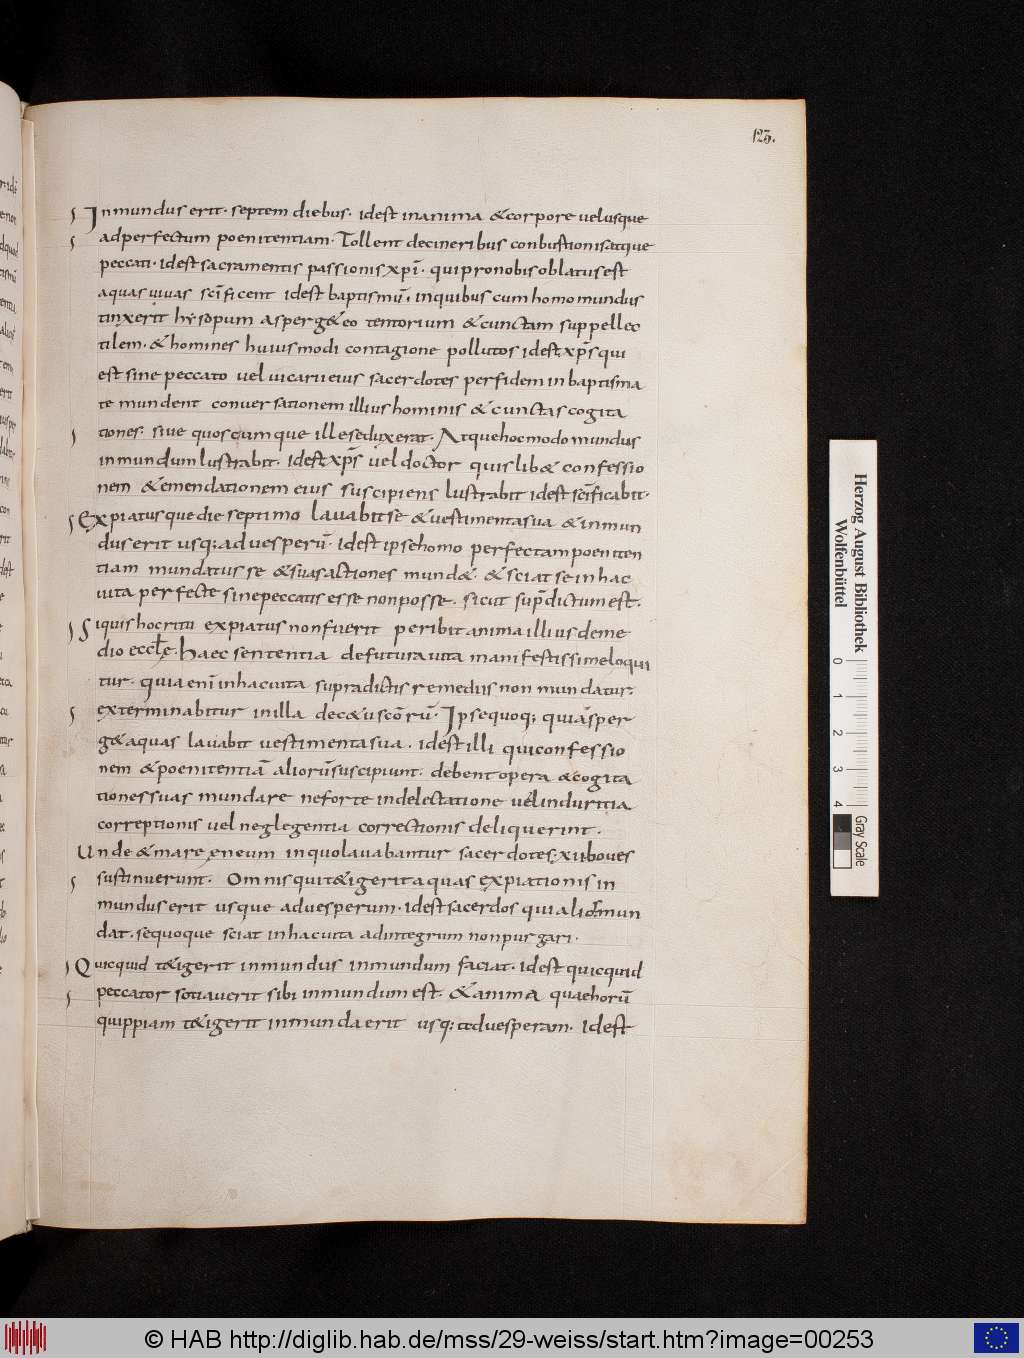 123.
Inmundus erit. septem diebus. idest inanima & corpore uelusque
adperfectum poenitentiam. Tollent decineribus conbustionisatque
peccati. idest sacramentis passionis xpi̅. quipronobisoblatusest
aquas uiuas sci̅ficent idest baptismu̅. inquibus cum homo mundus
tinxerit hysopum asperg& eo tentorium & cunctam suppellec
tilem. & homines huiusmodi contagione pollutos idest xp̅s qui
est sine peccato uel uicarii eius sacerdotes perfidem in baptisma
te mundent conuersationem illius hominis & cunctas cogita
tiones. siue quoscumque ille seduxerat. Atque hoc modo mundus
inmundum lustrabit. idest xp̅s uel doctor quislib& confessio
nem & emendationem eius suscipiens lustrabit idest sci̅ficabit.
Expiatusque die septimo lauabit se & uestimenta sua & inmun
dus erit usq; ad uesperu̅. idest ipse homo perfectam poeniten
tiam mundatus se & suas actiones mund&. & sciat se in hac
uita perfecte sine peccatis esse non posse. sicut sup̅dictum est.
Siquis hoc ritu expiatus non fuerit peribit anima illius deme
dio eccl̅ę. Haec sententia de futura uita manifestissime loqui
tur. quia eni̅ in hac uita supradictis remediis non mundatur.
exterminabitur in illa dec&u sco̅ru̅. Ipse quoq; qui asper
g& aquas lauabit uestimenta sua. idest illi qui confessio
nem & poenitentia̅ alioru̅ suscipiunt. debent opera & cogita
tiones suas mundare ne forte in delectatione uel in duritia
correptionis uel neglegentia correctionis deliquerint.
Unde & mare ęneum in quo lauabantur sacerdotes. xii boues
sustinuerunt. Omnis qui t&igerit aquas expiationis in
mundus erit usque ad uesperum. idest sacerdos qui alios mun
dat. sequoque sciat in hac uita ad integrum non purgari.
Quicquid t&igerit inmundus inmundum faciat. idest quicquid
peccator sotiauerit sibi inmundum est. & anima quae horu̅
quippiam t&igerit inmunda erit usq; ad uesperam. Idest
Herzog August Bibliothek
Wolfenbüttel
0 1 2 3 4
Gray Scale
© HAB http://diglib.hab.de/mss/29-weiss/start.htm?image=00253